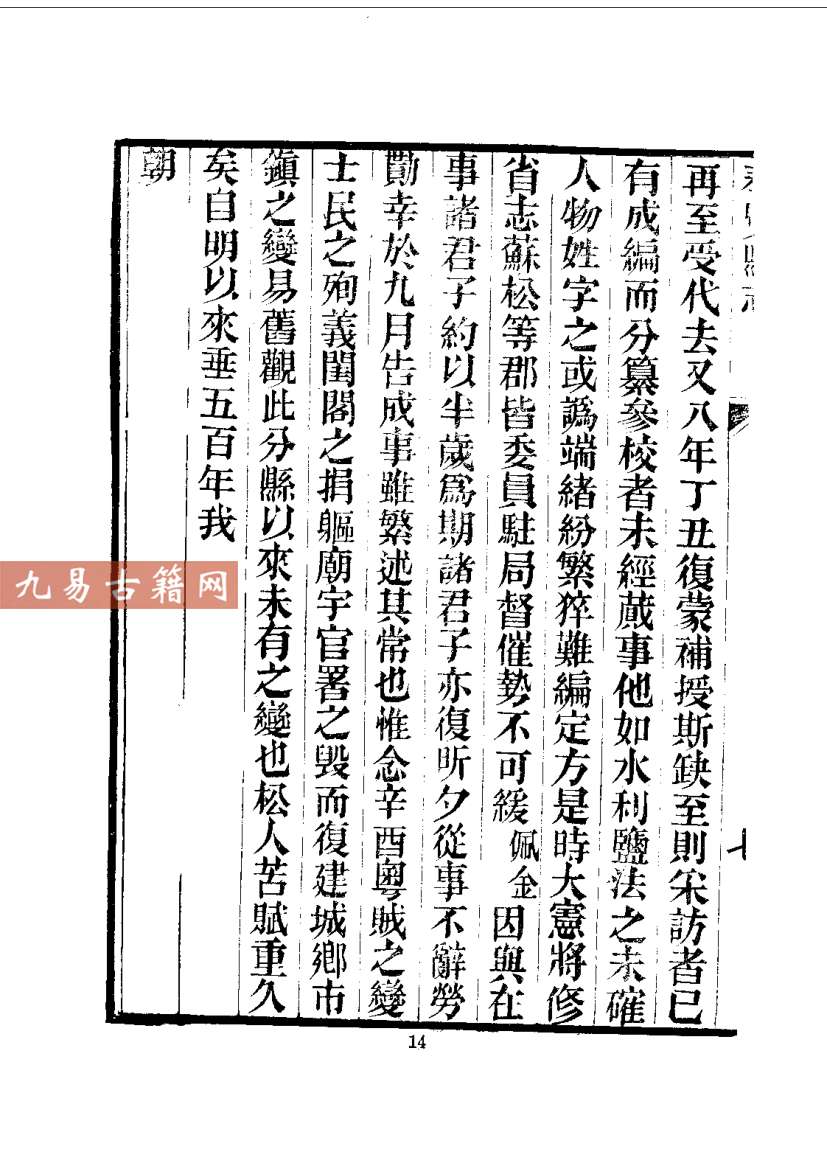 再至受代去又八年丁丑復蒙補授斯缺至則采訪者已
有成編而分纂參校者未經蕆事他如水利鹽法之未確
人物姓字之或譌端緒紛繁猝難編定方是時大憲將修
省志蘇松等郡皆委員駐局督催勢不可緩佩金因與在
事諸君子約以半歲爲期諸君子亦復昕夕從事不辭勞
勩幸於九月告成事雖繁述其常也惟念辛酉粵賊之變
士民之殉義閨閣之捐軀廟宇官署之毀而復建城鄉市
鎮之變易舊觀此分縣以來未有之變也松人苦賦重久
矣自明以來垂五百年我
朝
九易古籍网
14